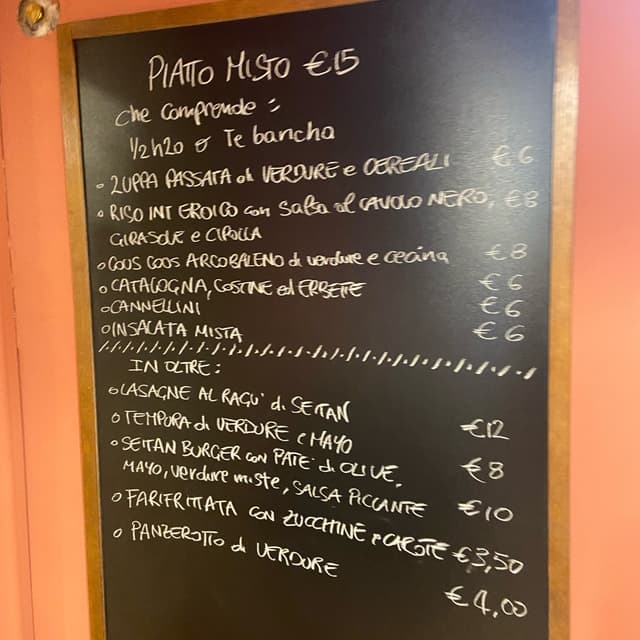 PIATTO MISTO €15
che comprende :
1/2 h20 o Te bancha
ZUPPA PASSATA di VERDURE e CEREALI €6
RISO INTEGROICO con salsa al CAVOLO NERO, €8
GIRASOLE e CIPOLLA
COUS COUS ARCOBALENO di verdure e cecina €8
CATALOGNA, COSTINE ed ERBETTE €6
CANNELLINI €6
INSALATA MISTA €6
IN OLTRE :
LASAGNE AL RAGU' di SEITAN €12
TEMPURA di VERDURE e MAYO €8
SEITAN BURGER con PATE' di OLIVE,
MAYO, verdure miste, SALSA PICCANTE €10
FARIFRITTATA con ZUCCHINE e CAROTE €3,50
PANZEROTTO di VERDURE €4,00